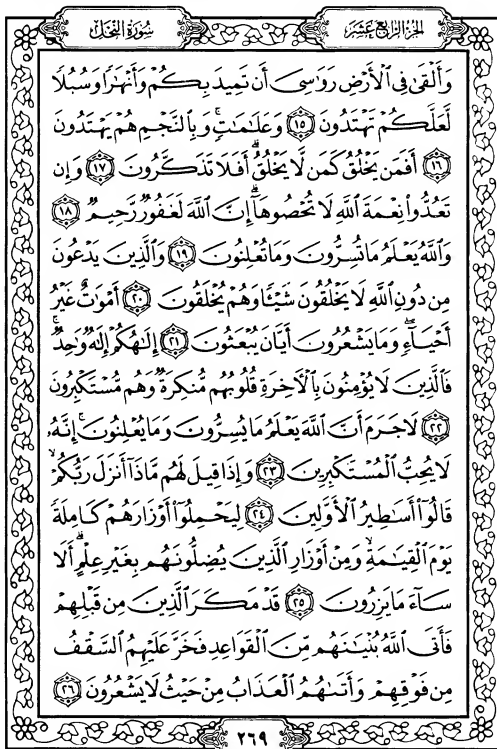 الجزء الرابع عشر
سورة النحل
وَأَلْقَىٰ فِي ٱلْأَرْضِ رَوَٰسِىَ أَن تَمِيدَ بِكُمْ وَأَنْهَٰرًا وَسُبُلًا
لَّعَلَّكُمْ تَهْتَدُونَ ١٥ وَعَلَٰمَٰتٍ ۚ وَبِٱلنَّجْمِ هُمْ يَهْتَدُونَ
١٦ أَفَمَن يَخْلُقُ كَمَن لَّا يَخْلُقُ ۗ أَفَلَا تَذَكَّرُونَ ١٧ وَإِن
تَعُدُّوا۟ نِعْمَةَ ٱللَّهِ لَا تُحْصُوهَآ ۗ إِنَّ ٱللَّهَ لَغَفُورٌ رَّحِيمٌ ١٨
وَٱللَّهُ يَعْلَمُ مَا تُسِرُّونَ وَمَا تُعْلِنُونَ ١٩ وَٱلَّذِينَ يَدْعُونَ
مِن دُونِ ٱللَّهِ لَا يَخْلُقُونَ شَيْـًٔا وَهُمْ يُخْلَقُونَ ٢٠ أَمْوَٰتٌ غَيْرُ
أَحْيَآءٍ ۖ وَمَا يَشْعُرُونَ أَيَّانَ يُبْعَثُونَ ٢١ إِلَٰهُكُمْ إِلَٰهٌ وَٰحِدٌ ۚ
فَٱلَّذِينَ لَا يُؤْمِنُونَ بِٱلْءَاخِرَةِ قُلُوبُهُم مُّنكِرَةٌ وَهُم مُّسْتَكْبِرُونَ
٢٢ لَا جَرَمَ أَنَّ ٱللَّهَ يَعْلَمُ مَا يُسِرُّونَ وَمَا يُعْلِنُونَ ۚ إِنَّهُۥ
لَا يُحِبُّ ٱلْمُسْتَكْبِرِينَ ٢٣ وَإِذَا قِيلَ لَهُم مَّاذَآ أَنزَلَ رَبُّكُمْ ۙ
قَالُوٓا۟ أَسَٰطِيرُ ٱلْأَوَّلِينَ ٢٤ لِيَحْمِلُوٓا۟ أَوْزَارَهُمْ كَامِلَةً
يَوْمَ ٱلْقِيَٰمَةِ ۙ وَمِنْ أَوْزَارِ ٱلَّذِينَ يُضِلُّونَهُم بِغَيْرِ عِلْمٍ ۗ أَلَا
سَآءَ مَا يَزِرُونَ ٢٥ قَدْ مَكَرَ ٱلَّذِينَ مِن قَبْلِهِمْ
فَأَتَى ٱللَّهُ بُنْيَٰنَهُم مِّنَ ٱلْقَوَاعِدِ فَخَرَّ عَلَيْهِمُ ٱلسَّقْفُ
مِن فَوْقِهِمْ وَأَتَىٰهُمُ ٱلْعَذَابُ مِنْ حَيْثُ لَا يَشْعُرُونَ ٢٦
٢٦٩